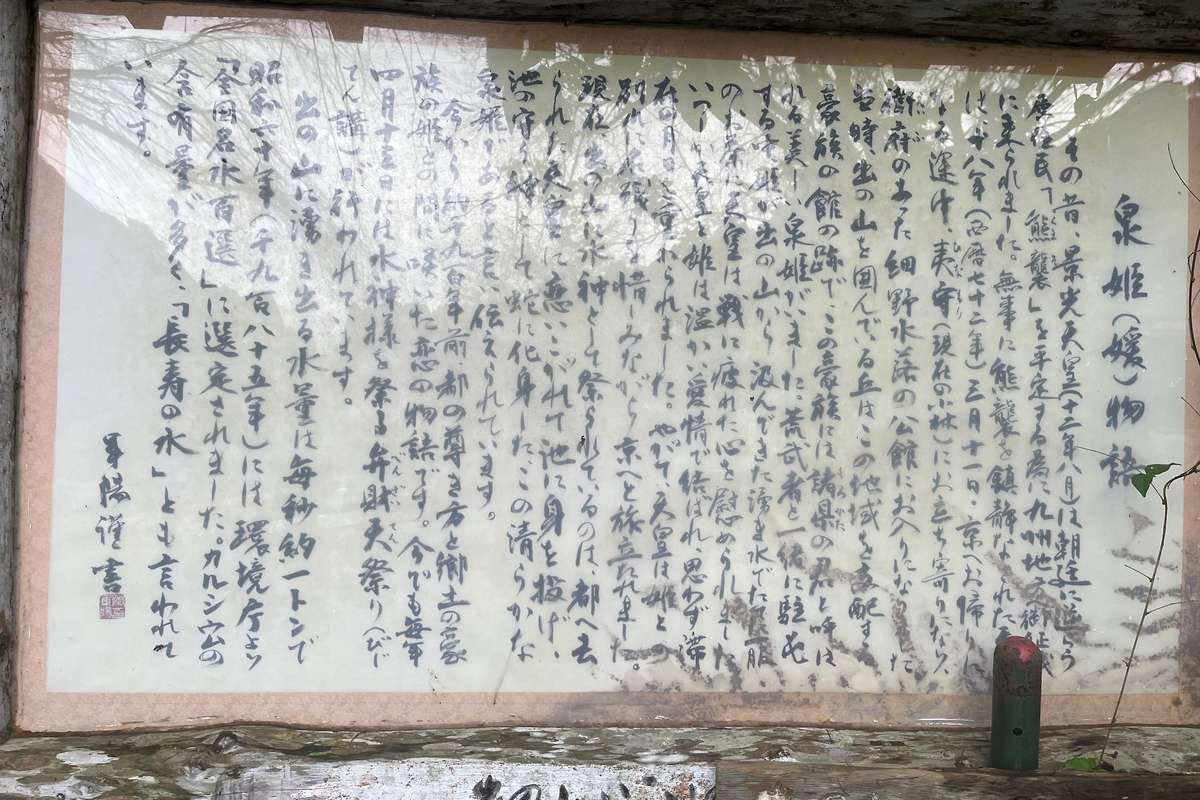 泉姫(媛)物語
その昔、景光天皇(十二年八月)は朝廷に逆らう
原住民「熊襲」を平定する為に九州地方
に来られました。無事に熊襲を鎮静なされた
は十八年(西暦七十二年)三月十一日、京へお帰りに
なる途中、夷守(現在の小林)にお立ち寄りになり
ひなもり
御府のあった細野水落の公館にお入りになした
当時、出の山を囲んでいる丘はこの地域を支配する
豪族の館の跡で、この豪族には諸県の君と呼ば
もろかた
れる美しい泉姫がいました。荒武者と一緒に駐屯
する時、姫が出の山から汲んできた湧き水でたて一服
のお茶に天皇は、戦に疲れた心を慰められました
いつしか天皇と姫は温かい愛情で結ばれ、思わず滞
在の月日を送られました。やがて、天皇は姫との
別れに名残りを惜しみながら京へと旅立たれました。
現在出の山に水神として祭られているのは、都へ去
られた天皇に恋いこがれて池に身を投げ、
池の守り神として蛇に化身したこの清らかな
泉姫であると言い伝えられています。
今から約千九百年前、都の尊き方と郷土の豪
族の姫との間に咲いた恋の物語です。今でも毎年
四月十三日には水神様を祭る弁財天祭り(べんざいてん
てん講)が行われています。
出の山に湧き出る水量は毎秒約一トンで
昭和六十年(千九百八十五年)には環境庁より
「全国名水百選」に選定されました。カルシウムの
含有量が多く、「長寿の水」とも言われて
います。
謹書